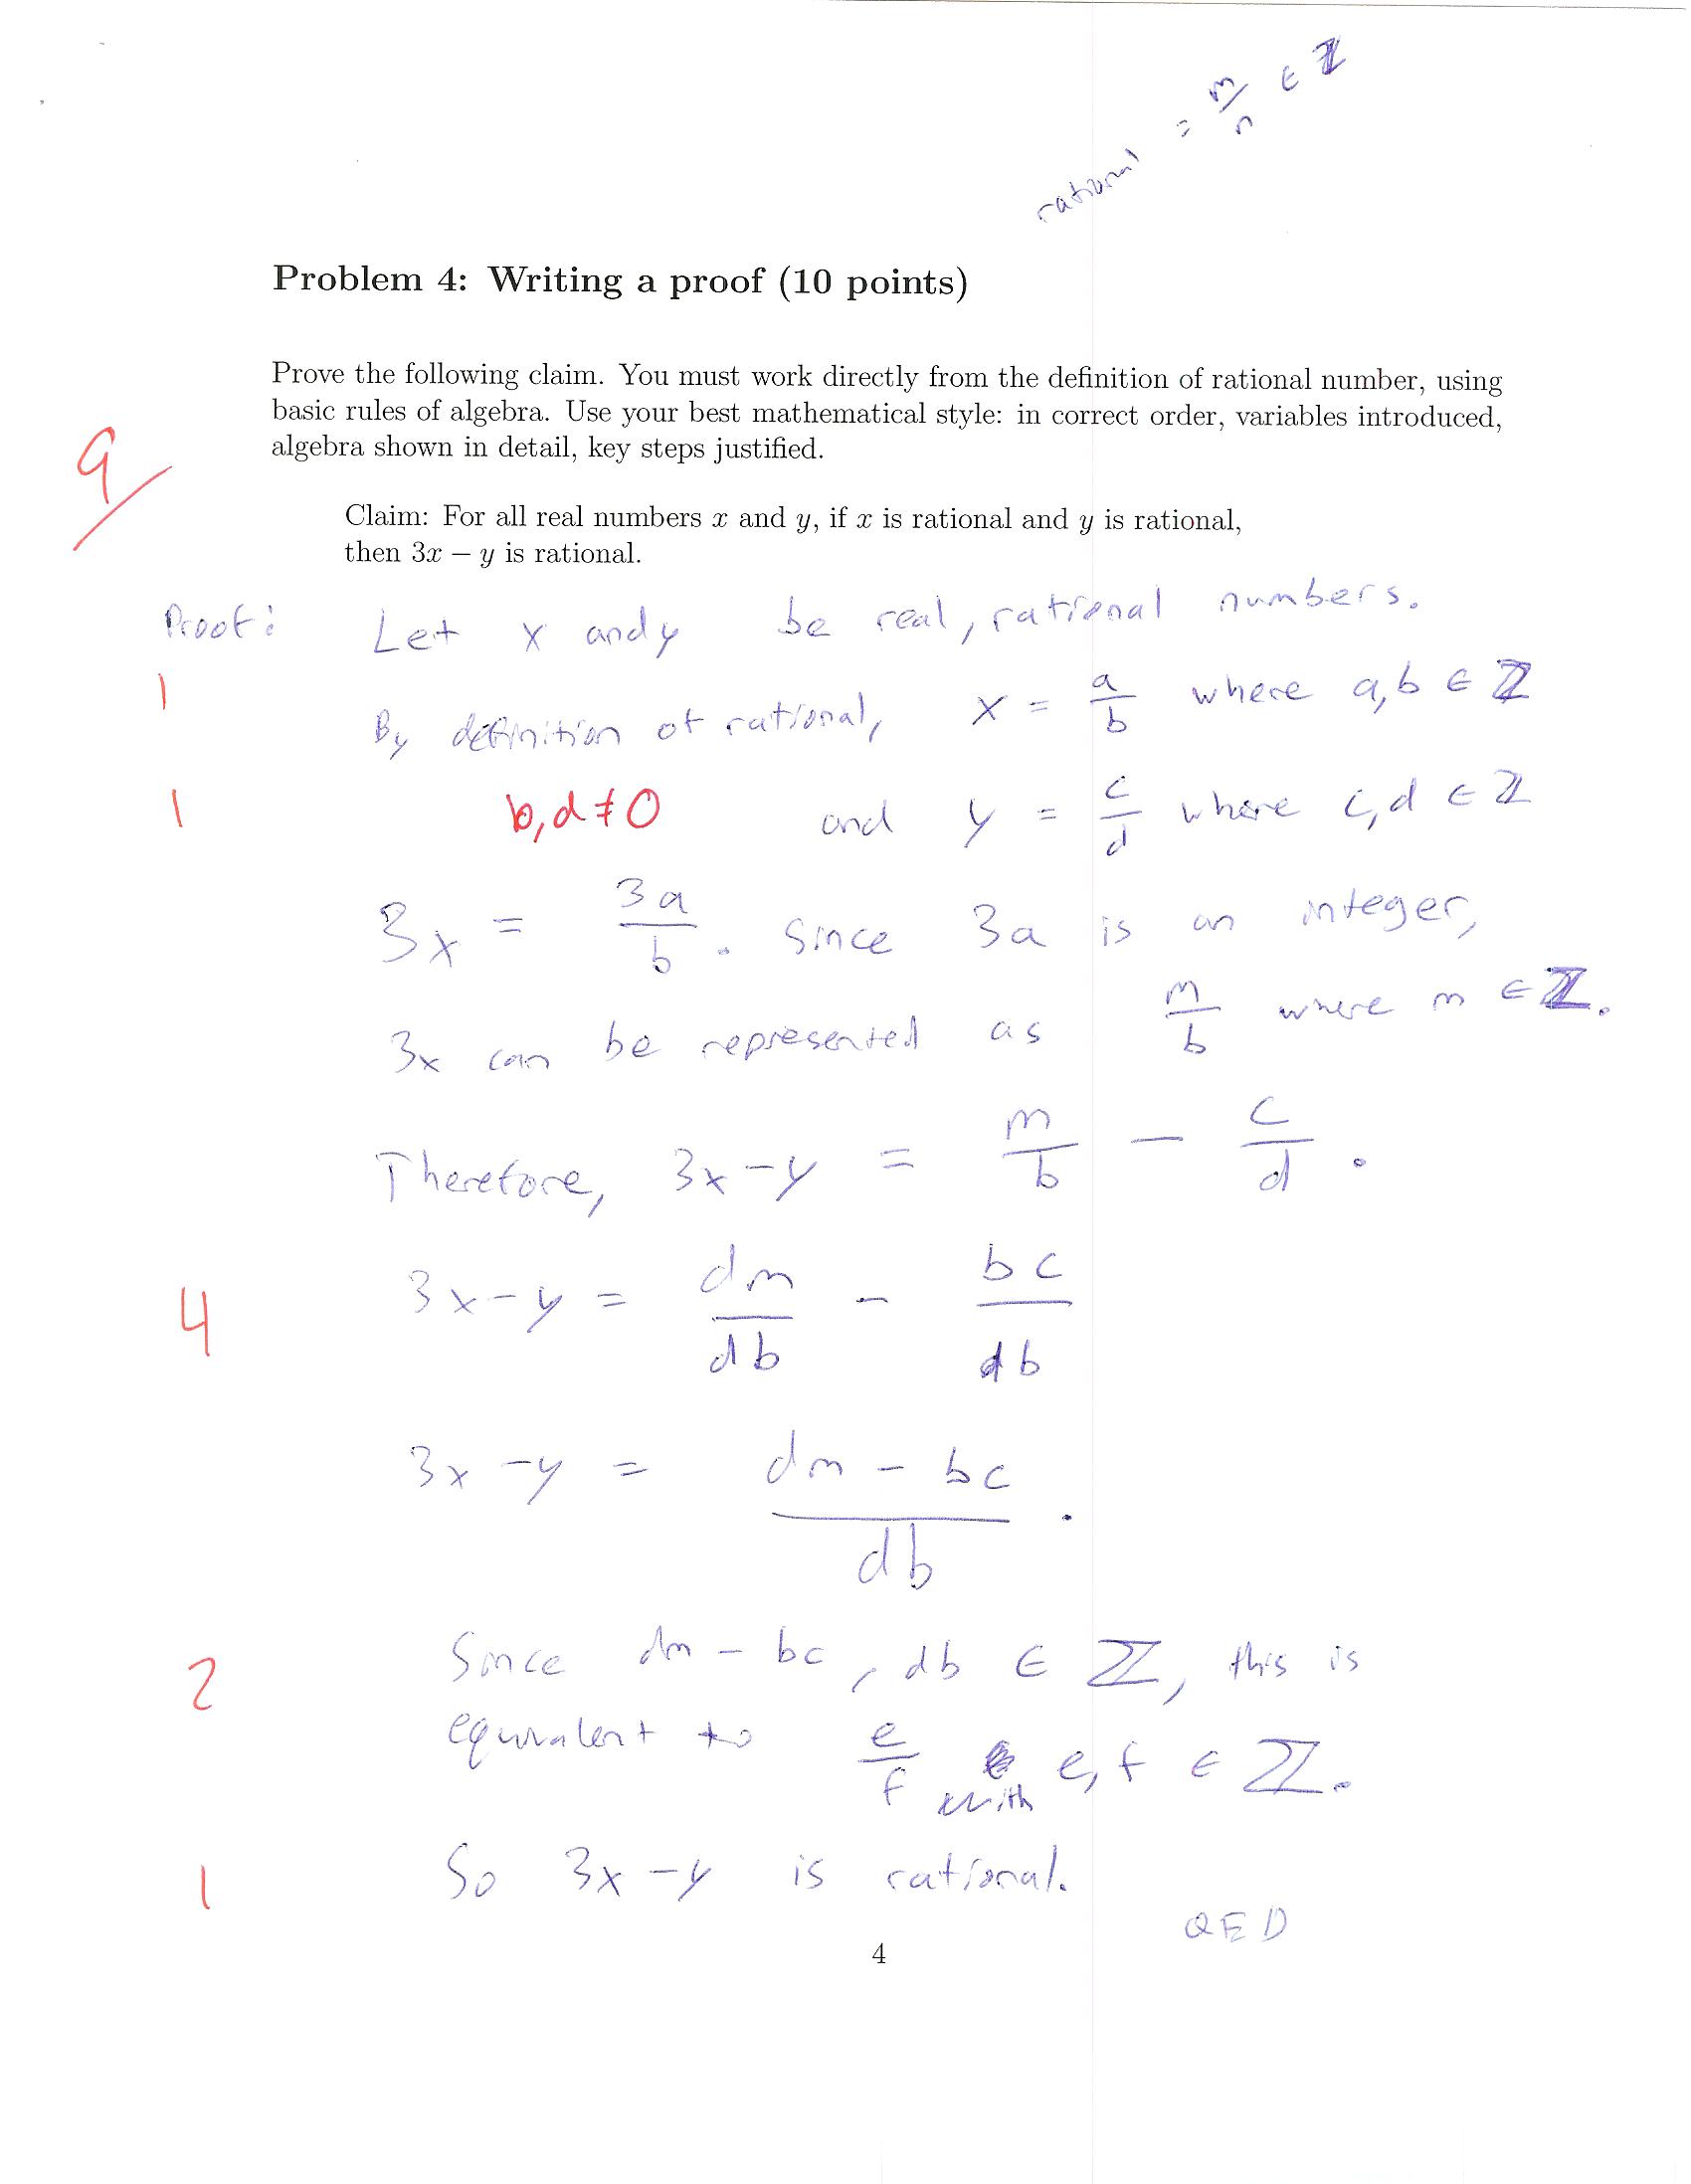 rational = m/n ∈ ℤ
Problem 4: Writing a proof (10 points)
Prove the following claim. You must work directly from the definition of rational number, using
basic rules of algebra. Use your best mathematical style: in correct order, variables introduced,
algebra shown in detail, key steps justified.
9
Claim: For all real numbers x and y, if x is rational and y is rational,
then 3x − y is rational.
Proof: Let x and y be real, rational numbers.
1
By definition of rational, x = a/b where a,b ∈ ℤ
1 b,d ≠ 0 and y = c/d where c,d ∈ ℤ
3x = 3a/b. Since 3a is an integer,
3x can be represented as m/b where m ∈ ℤ.
Therefore, 3x-y = m/b - c/d.
4 3x-y = dm/db - bc/db
3x-y = dm - bc/db.
2 Since dm - bc, db ∈ ℤ, this is
equivalent to e/f with e,f ∈ ℤ.
1 So 3x-y is rational.
QED
4